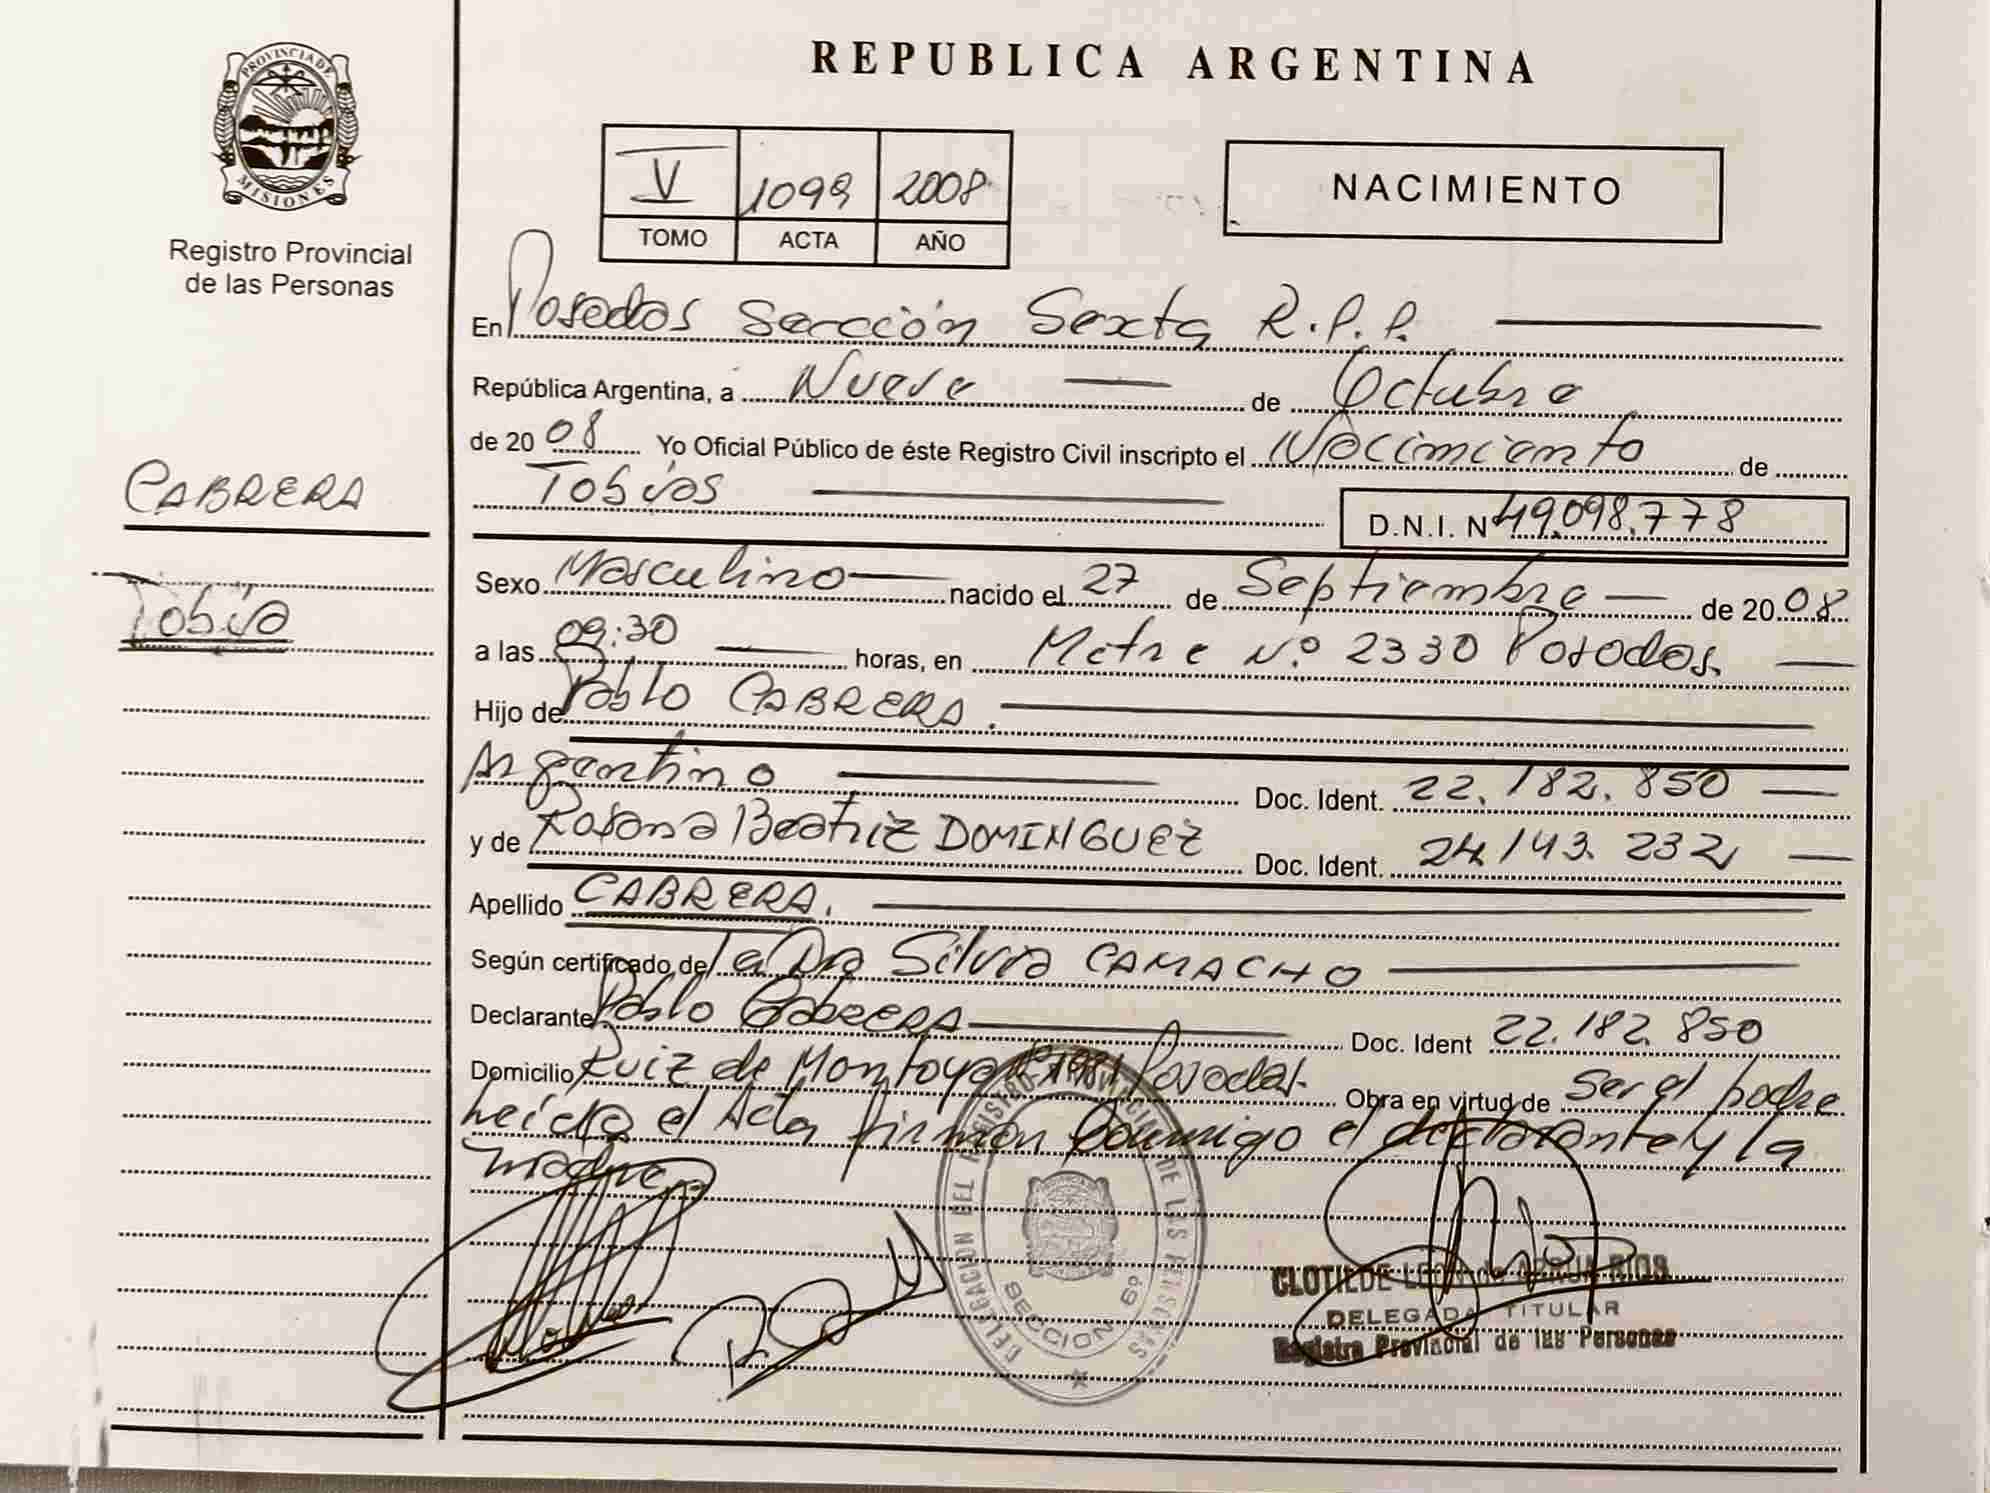 PROVINCIA DE
MISIONES
Registro Provincial
de las Personas
CABRERA
Tobías
REPUBLICA ARGENTINA
V 1099 2008
TOMO ACTA AÑO
NACIMIENTO
En Posadas Sección Sexta R.P.P.
República Argentina, a Nueve de Octubre
de 2008 Yo Oficial Público de éste Registro Civil inscripto el Nacimiento de
Tobías D.N.I. Nº 49.098.778
Sexo Masculino nacido el 27 de Septiembre de 2008
a las 09:30 horas, en Mitre Nº 2330 Posadas.
Hijo de Pablo CABRERA.
Argentino Doc. Ident. 22.182.850
y de Rosana Beatriz DOMINGUEZ Doc. Ident. 24.143.232
Apellido CABRERA.
Según certificado de la Dra Silvia CAMACHO
Declarante Pablo CABRERA Doc. Ident 22.182.850
Domicilio Ruiz de Montoya Posadas. Obra en virtud de Ser el padre
Leída el Acta firman Conmigo el declarante y la
madre
DELEGACION DEL REGISTRO PROVINCIAL DE LAS PERSONAS
SECCION 6º
CLOTILDE RIOS
DELEGADA TITULAR
Registro Provincial de las Personas